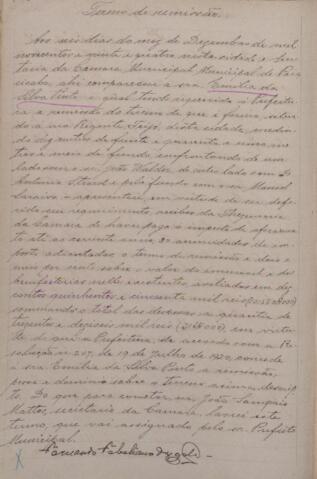 Termo de remissão.
Aos seis dias do mez de Dezembro de mil
novecentos e vinte e quatro nesta cidade e Secre-
taria da Camara Municipal de Pira-
cicaba, ahi compareceu a sra. Emilia da
Silva Pinto a qual tendo requerido á Prefeitu-
ra a remissão do terreno de que é foreira, situa-
do á rua Regente Feijó, desta cidade, medin-
do de frente e quarenta e
tros e meio de fundo confrontando de um
lado com o sr. João Walder, de outro lado com D.
Antonia e pelo fundo com o sr. Manoel
e apresentou, em virtude de ser defe-
rido seu requerimento, recibos da Thesouraria
da Camara de haver pago o imposto de aforamen-
to até o corrente anno, 20 annuidades de im-
posto adiantadas o termo de remissão e dois e
meio por cento sobre o valor do immovel e de
bemfeitorias nelle existentes, avaliados em
contos quinhentos e cincoenta mil reis
sommando o total das despesas a quantia de
trezentos e dezeseis mil reis (316\$000), em virtu-
de do que a Prefeitura, de accordo com a Re-
solução n. 207, de 19 de Julho de 1920, concede
á sra. Emilia da Silva Pinto a remissão,
posse e dominio sobre o terreno acima descrip-
to. Do que para constar eu, João Sampaio
Mattos, secretario da Camara, lavrei este
termo, que vai assignado pelo sr. Prefeito
Municipal.
Fernando Febeliano